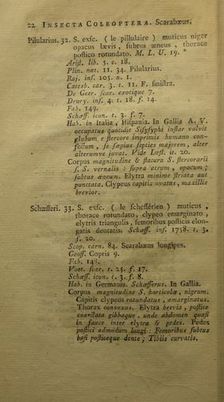 22 INSECTA COLEOPTERA. Scarabæus.
Pilularius. 32. S. exsc. ( le pillulaire ) muticus niger
opacus lævis, subtus æneus, thorace
postico rotundato. M. L. U. 19. *
Arist. lib. 5. c. 18.
Plin. nat. 11. 34. Pilularius.
Raj. inf. 105. n. 1.
Catesb. car. 3. t. 11. F. sinistra.
De Geer. scar. exotique 7.
Drury. inf. 4. t. 18. f. 14.
Fab. 149.
Schæff. icon. t. 3. f. 7.
Hab. in Italia, Hispania. In Gallia A. V.
occupatus quotidie Sisyphi instar volvit
globum e stercore
se sæpius septies majorem, alter
alterumve juvat. Vide
Corpus magnitudine & statura S. stercorarii
f. S. vernalis : supra atrum, opacum ;
subtus æneum. Elytra minime striata aut
punctata. Clypeus capitis
brevior.
Schæfferi. 33. S. exsc. ( le schefférien ) muticus ,
thorace rotundato, clypeo emarginato ,
elytris triangulis , femoribus posticis elon-
gatis dentatis. Schæff. inf. 1758. t. 3.
f. 20.
Scop. carn. 84. Scarabæus longipes.
Geoff. Copris 9.
Fab. 148.
Voet. scar. t. 25. f. 17.
Schæff. icon. t. 3. f. 8.
Hab. in Germania. Schæfferus. In Gallia.
Corpus magnitudine S. horticolæ, nigrum.
Capitis clypeus rotundatus, emarginatus.
Thorax convexus. Elytra brevia, postice
coarctata gibbaque, unde abdomen quasi
in fauce inter elytra & pedes. Pedes
postici admodum longi : Femoribus subtus
basi posticeque dente ; Tibiis curvatis.